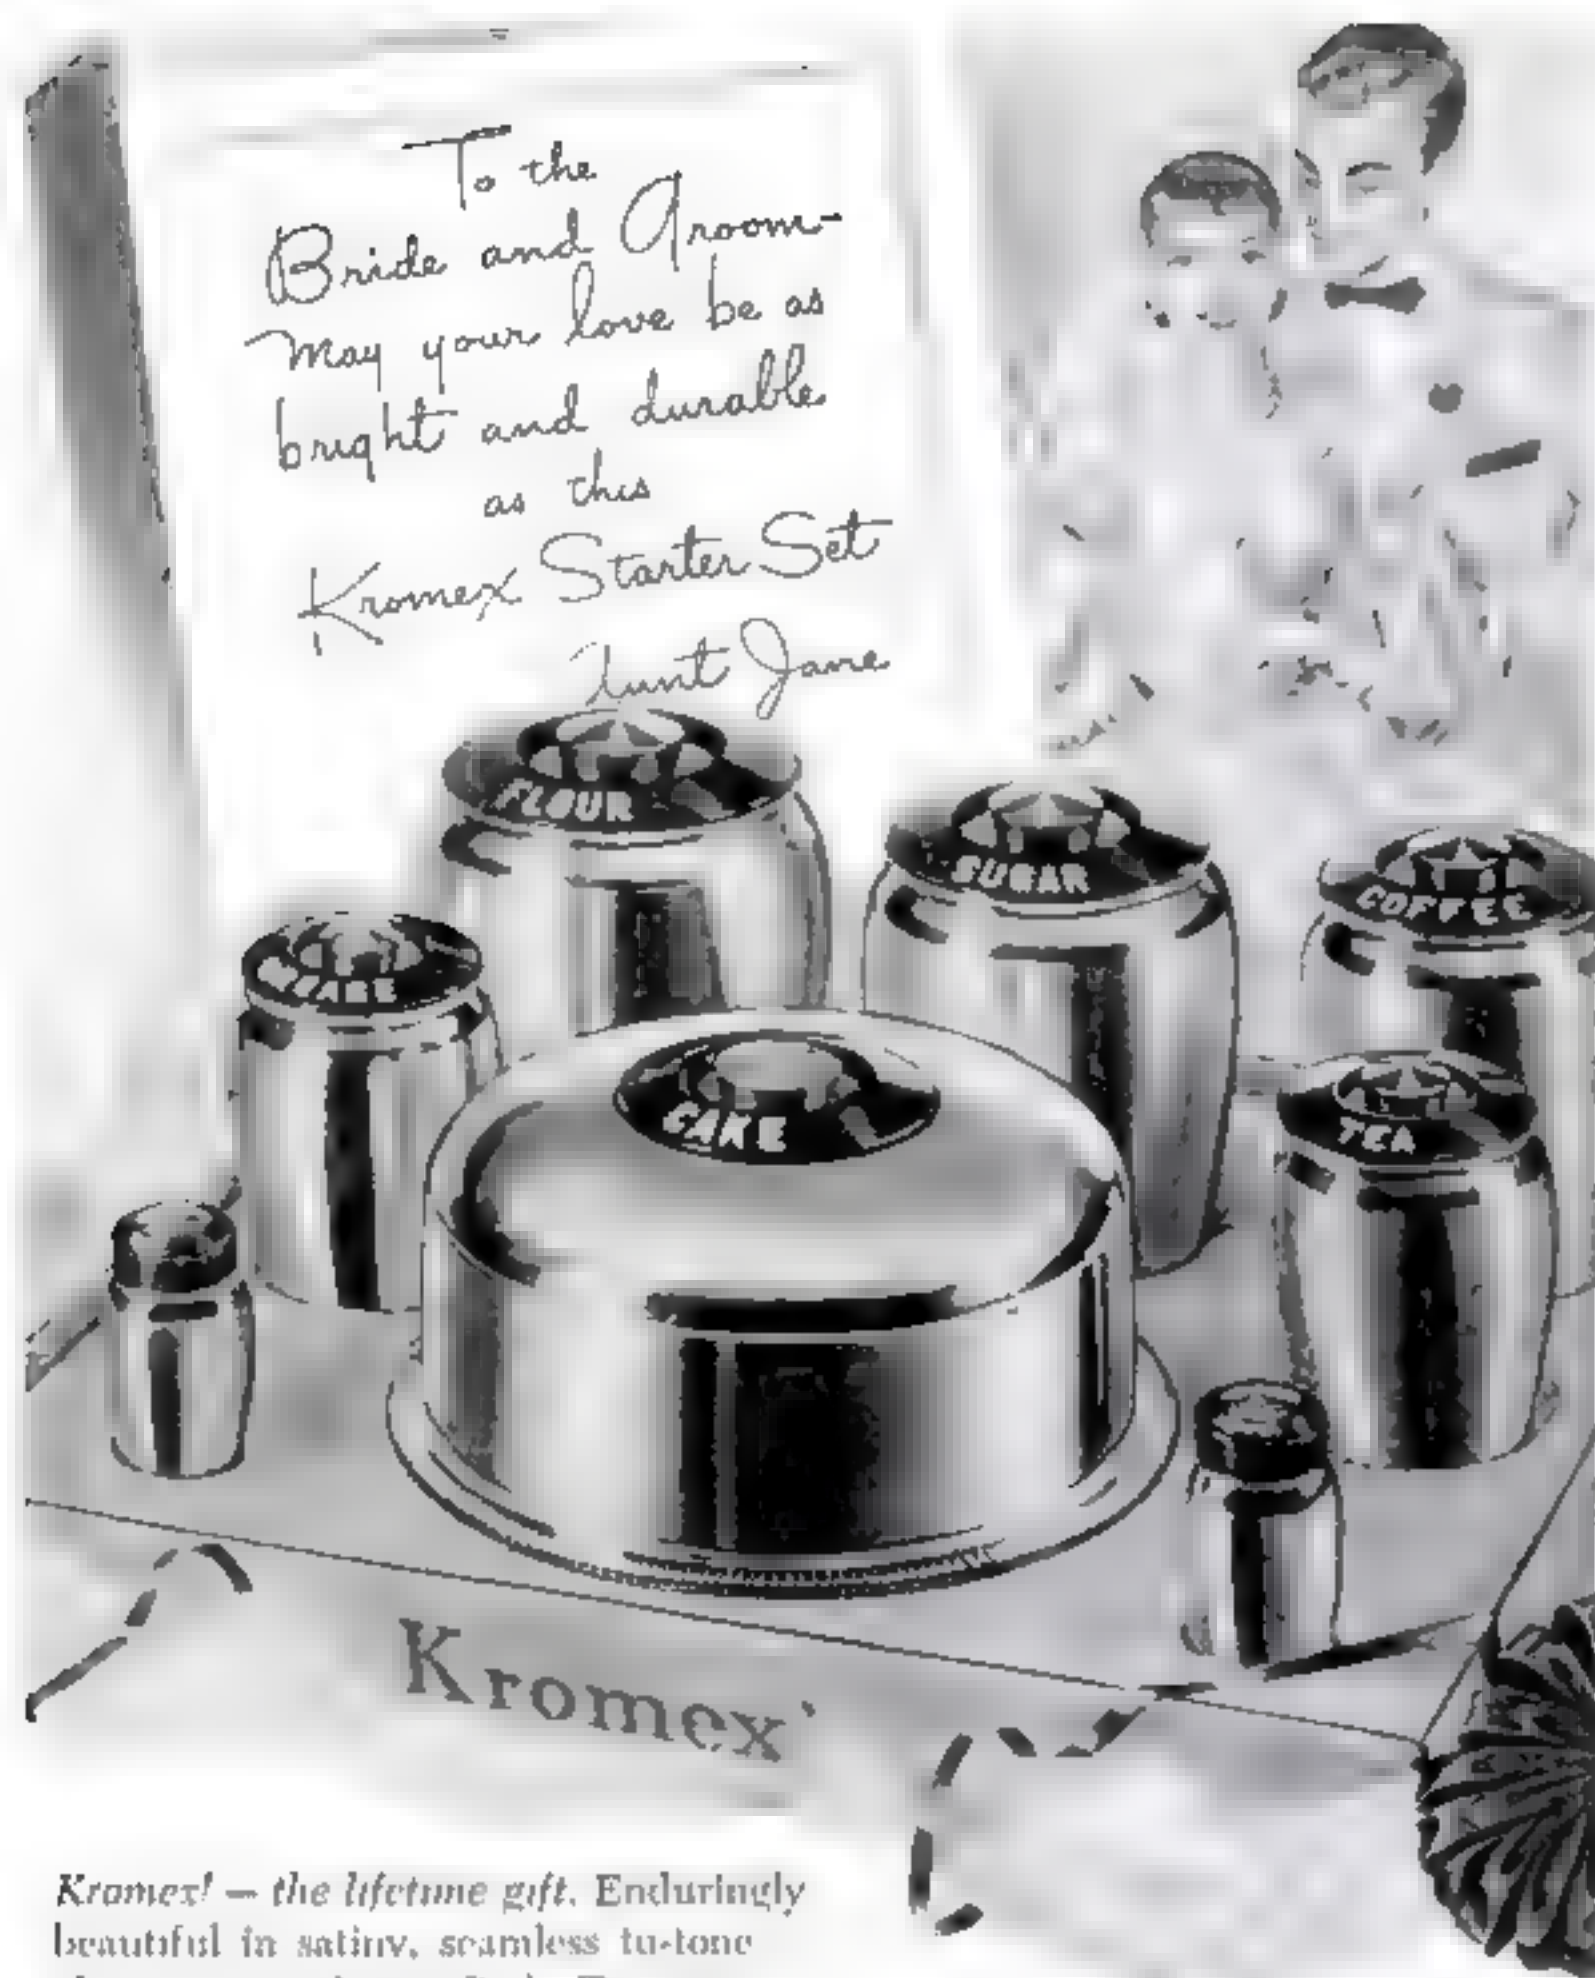 To the
Bride and Groom-
May your love be as
bright and durable
as this
Kromex Starter Set
Aunt Jane
FLOUR
SUGAR
COFFEE
CAKE
TEA
Kromex
Kromex! — the lifetime gift. Enduringly
beautiful in satiny, seamless tu-tone